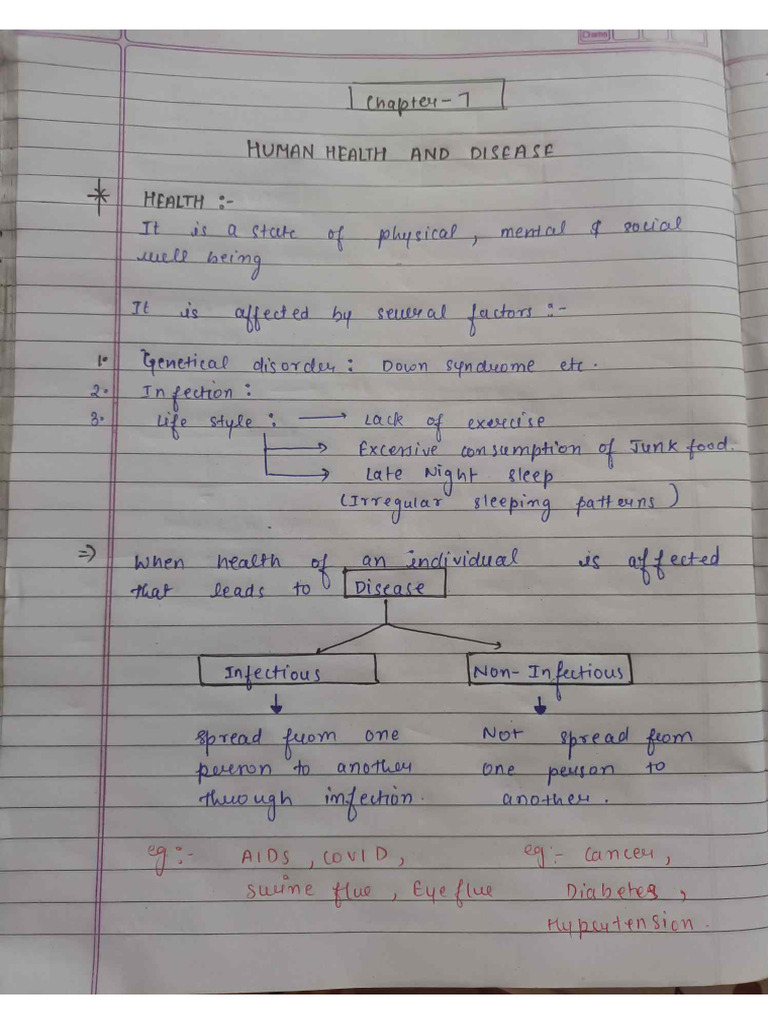 Date
Chapter-7
HUMAN HEALTH AND DISEASE
* HEALTH :-
It is a state of physical, mental & social
well being
It is affected by several factors :-
1. Genetical disorder : Down syndrome etc.
2. Infection :
3. Life style : → Lack of exercise
→ Excessive consumption of Junk food.
→ Late Night sleep
(Irregular sleeping patterns)
⇒ When health of an individual is affected
that leads to Disease
Infectious Non-Infectious
spread from one Not spread from
person to another one person to
through infection. another.
eg:- AIDS, COVID, eg:- Cancer,
Swine flue, Eye flue Diabetes,
Hypertension.